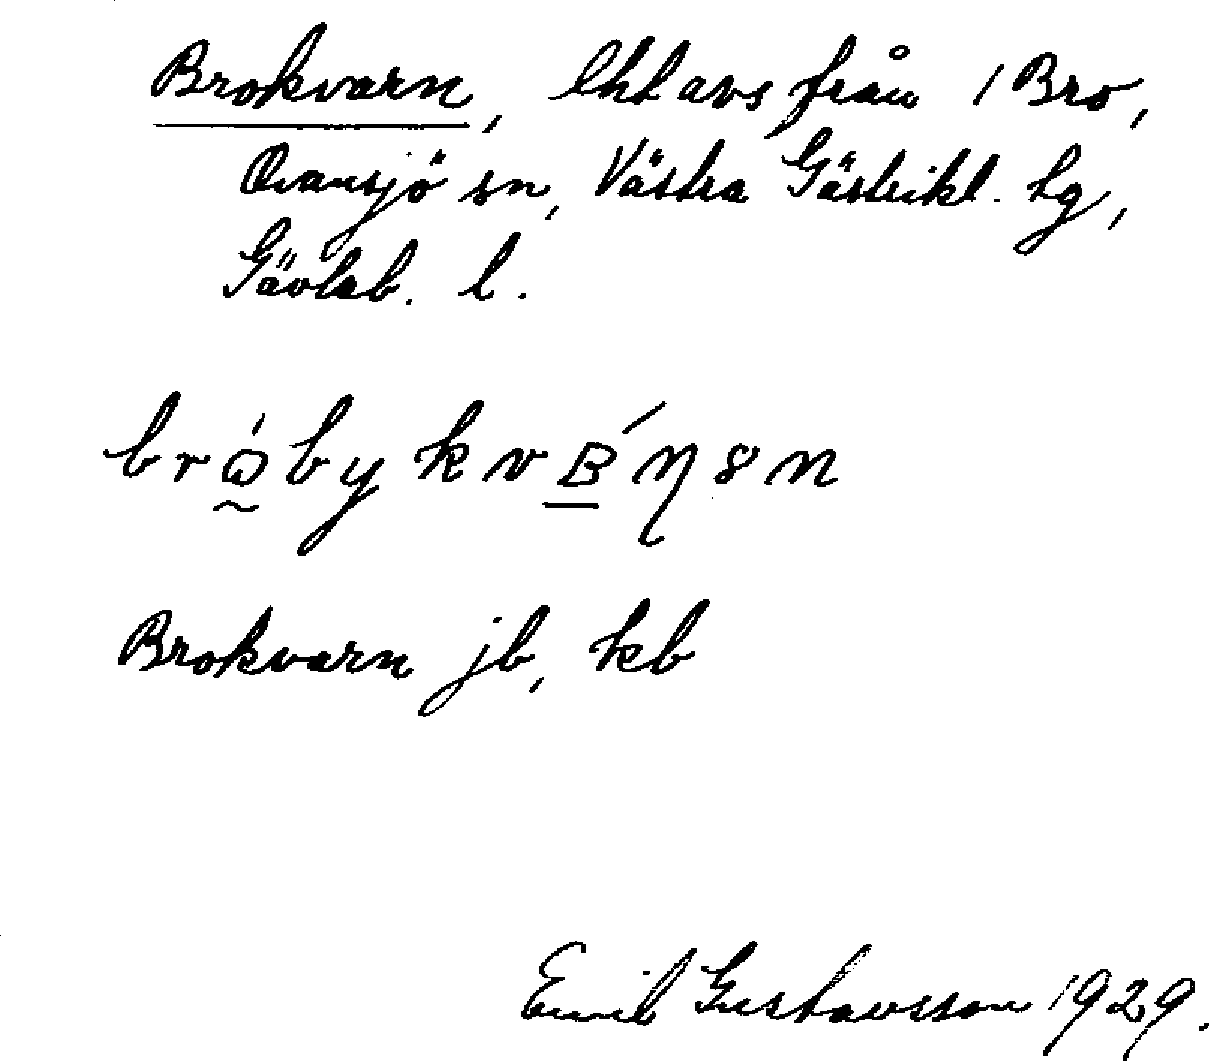 Brokvarn, lht avs från 1 Bro,
Ovansjö sn, Västra Gästrikl. tg,
Gävleb. l.
Brokvarn jb, kb
Emil Gustavsson 1929.